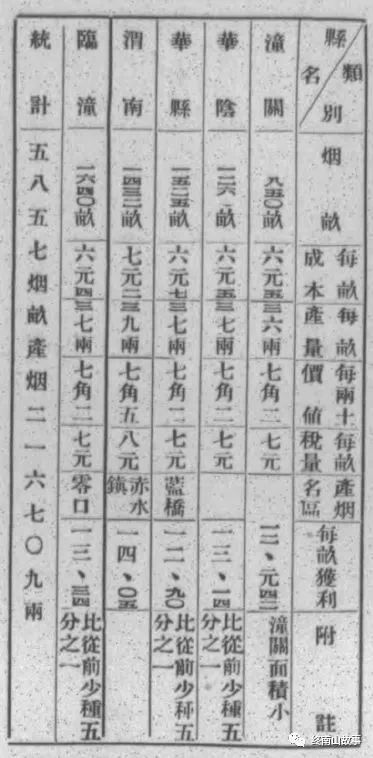 縣名 類別 烟畝 每畝成本 每畝產量 每兩土價值 每畝稅量 產烟名區 每畝獲利 附註
潼關 八五〇畝 六元五三 六兩 七角二 七元 一二、元四二 潼關面積小
華陰 一二六.畝 六元五三 七兩 七角二 七元 一三、一四 比從前少種五分之一
華縣 一五二五畝 六元七三 七兩 七角二 七元 藍橋 一二、九〇 比從前少种五分之一
渭南 一四三二畝 七元二三 九兩 七角五 八元 赤水鎮 一四、〇五
臨潼 一六四〇畝 六元四三 七兩 七角二 七元 零口 一三、三四 比從前少種五分之一
統計 五八五七烟畝產烟二一六七〇九兩
终南山故事